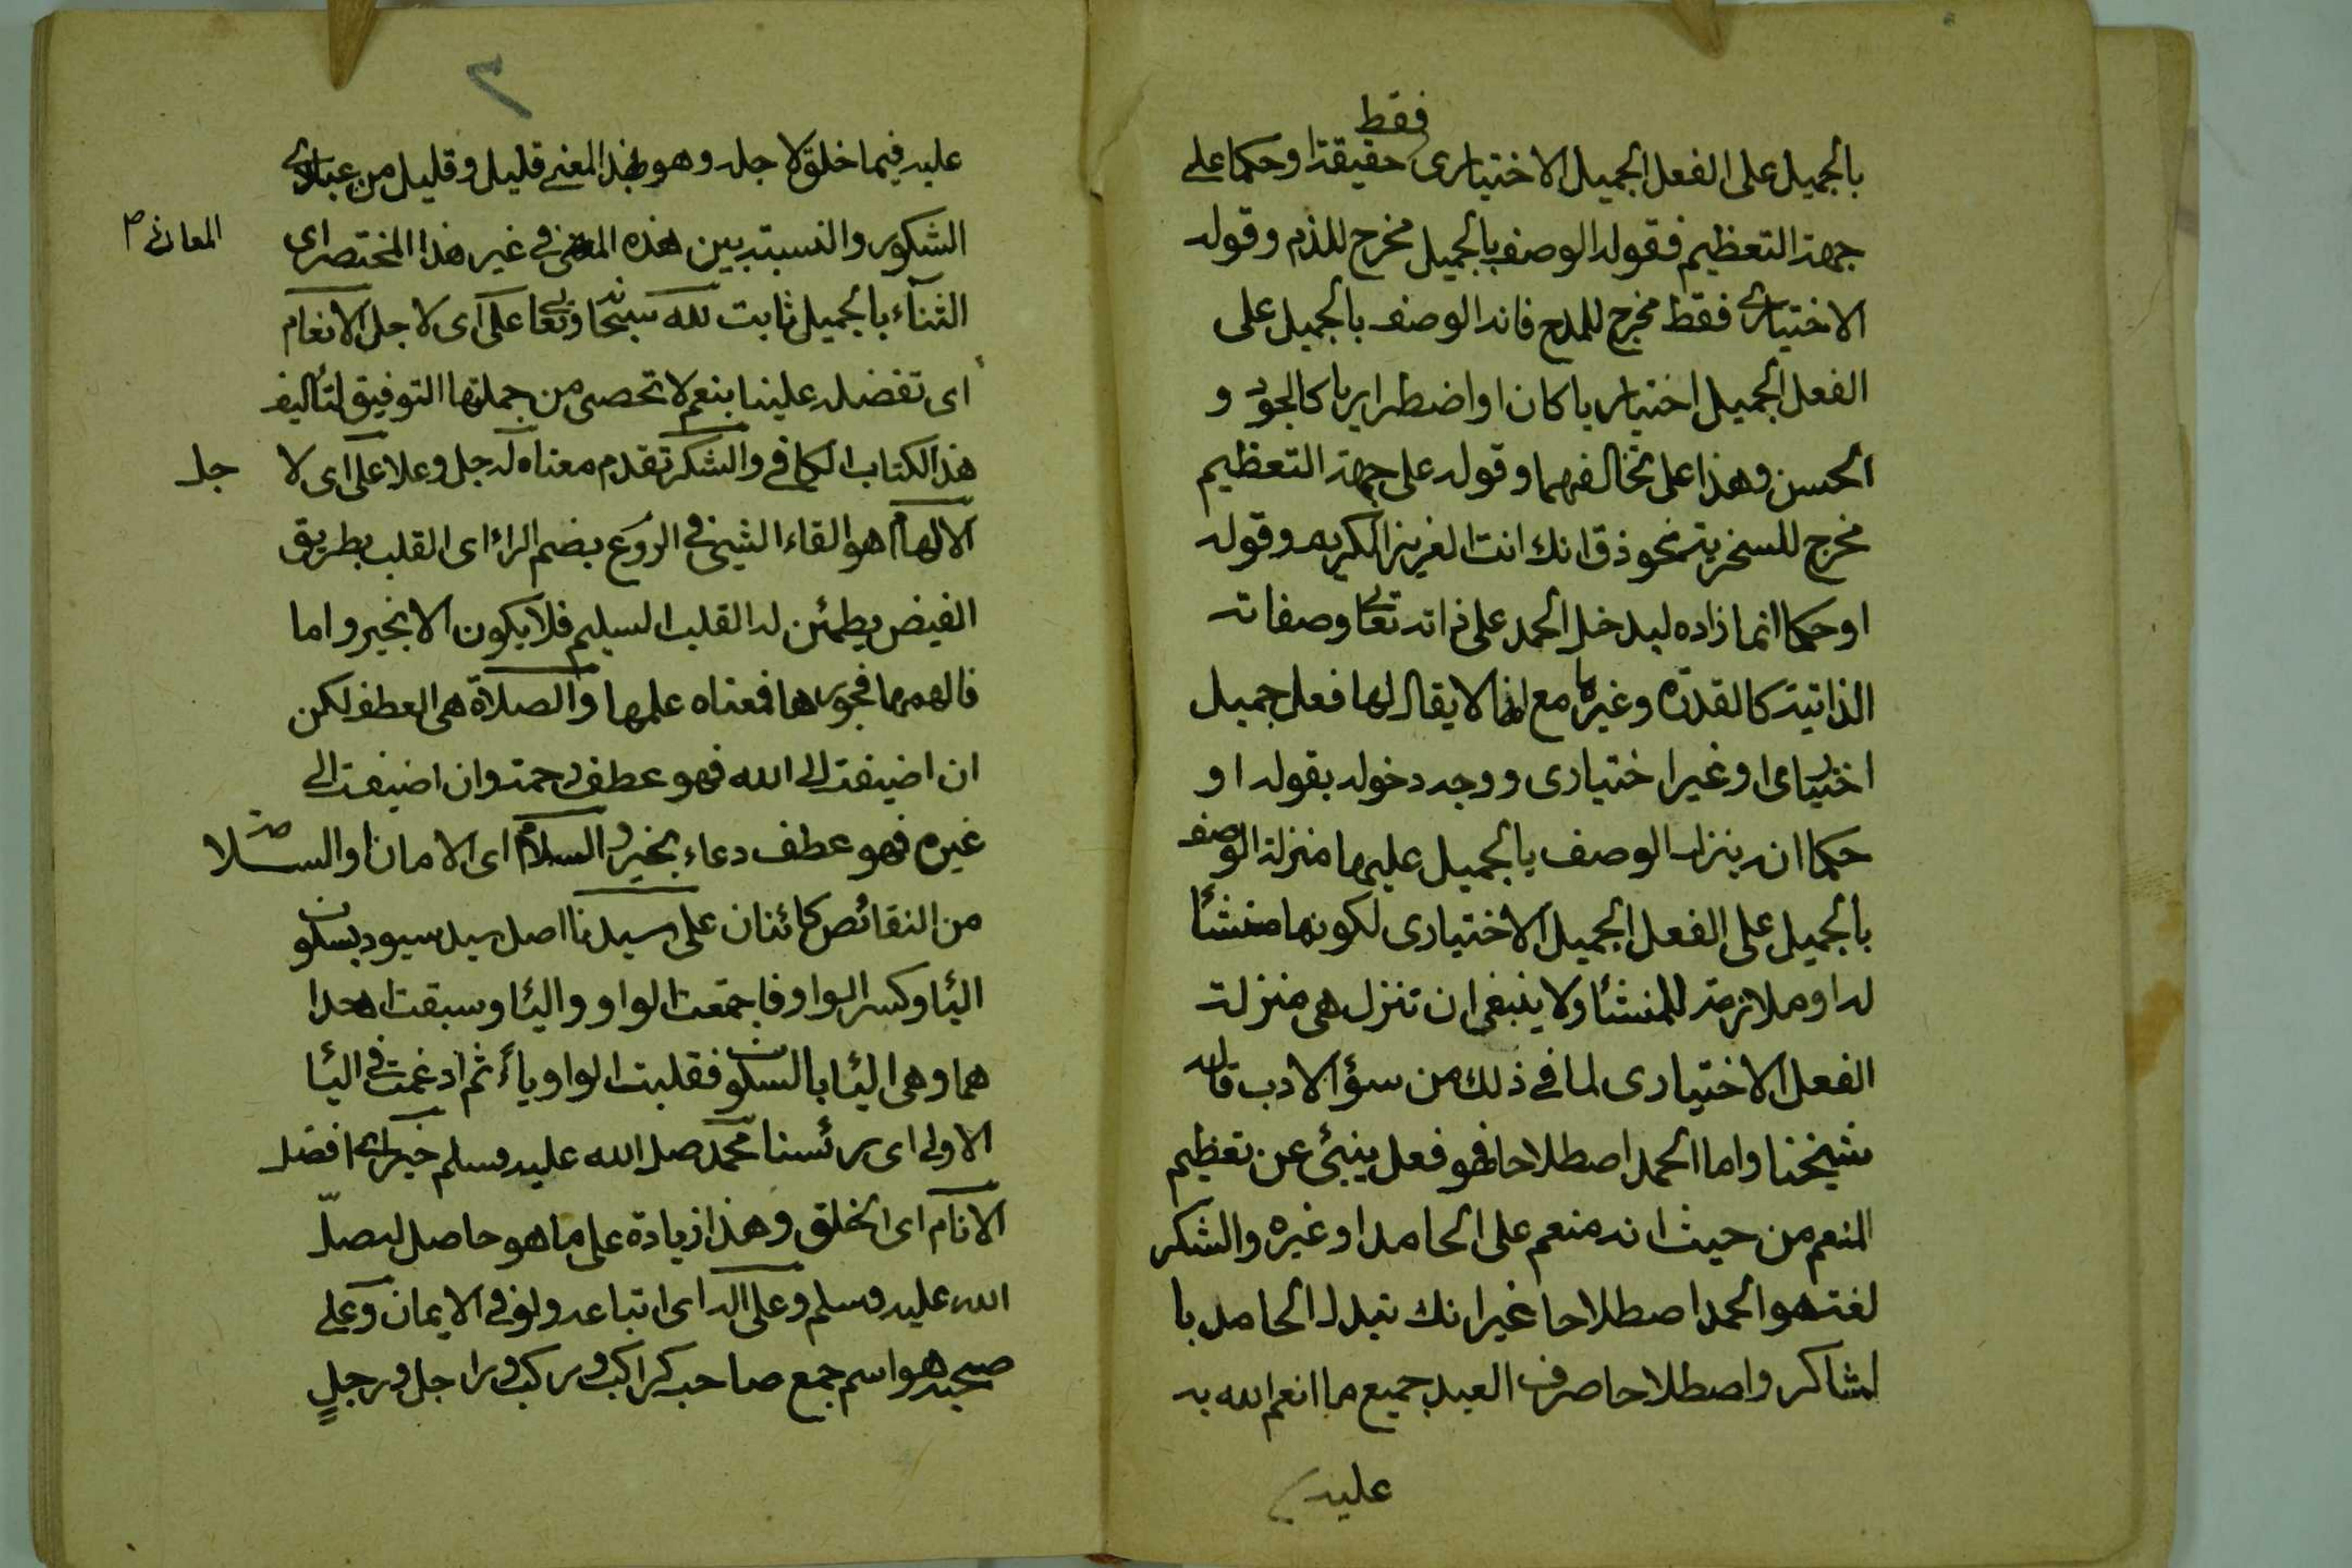 فقط
بالجميل على الفعل الجميل الاختيارى حقيقة او حكما على
جهة التعظيم فقوله الوصف بالجميل مخرج للذم وقوله
الاختيارى فقط مخرج للمدح فانه الوصف بالجميل على
الفعل الجميل اختياريا كان او اضطراريا كالجود و
الحسن وهذا على تخالفهما وقوله على جهة التعظيم
مخرج للسخرية نحو ذق انك انت العزيز الكريم وقوله
او حكما انما زاده ليدخل الحمد على ذاته تعالى وصفاته
الذاتية كالقدرة وغيرها مع انها لا يقال لها فعل جميل
اختيارى او غير اختيارى ووجه دخوله بقوله او
حكما انه ينزل الوصف بالجميل عليها منزلة الوصف
بالجميل على الفعل الجميل الاختيارى لكونها منشئا
له او ملازمة للمنشئا ولا ينبغى ان تنزل هى منزلة
الفعل الاختيارى لما فى ذلك من سؤ الادب قاله
شيخنا واما الحمد اصطلاحا فهو فعل ينبئ عن تعظيم
المنعم من حيث انه منعم على الحامد او غيره والشكر
لغة هو الحمد اصطلاحا غير انك تبدل الحامد با
لشاكر واصطلاحا صرف العبد جميع ما انعم الله به
عليه
٢
عليه فيما خلق لاجله وهو بهذا المعنى قليل وقليل من عبادى
الشكور والنسبة بين هذه المعانى فى غير هذا المختصر اى
المعانى م
الثناء بالجميل ثابت لله سبحانه وتعالى على اى لاجل الانعام
اى تفضله علينا بنعم لا تحصى من جملتها التوفيق لتأليف
هذا الكتاب الكافى والشكر تقدم معناه له جل وعلا على اى لا
جل
الالهام هو القاء الشيئ فى الروع بضم الراء اى القلب بطريق
الفيض يطمئن له القلب السليم فلا يكون الا بخير واما
فالهمها فجورها فمعناه علمها والصلاة هى العطف لكن
ان اضيفت الى الله فهو عطف رحمة وان اضيفت الى
غيره فهو عطف دعاء بخير والسلام اى الامان والسلامة
من النقائص كائنان على سيدنا اصل سيد سيود بسكون
اليا وكسر الواو فاجتمعت الواو واليا وسبقت احدا
هما وهى اليا بالسكون فقلبت الواو ياء ثم ادغمت فى اليا
الاولى اى رئسنا محمد صلى الله عليه وسلم خير اى افضل
الانام اى الخلق وهذا زيادة على ما هو حاصل له صلى
الله عليه وسلم وعلى اله اى اتباعه ولو فى الايمان وعلى
صحبه هو اسم جمع صاحب كراكب وركب وراجل ورجل